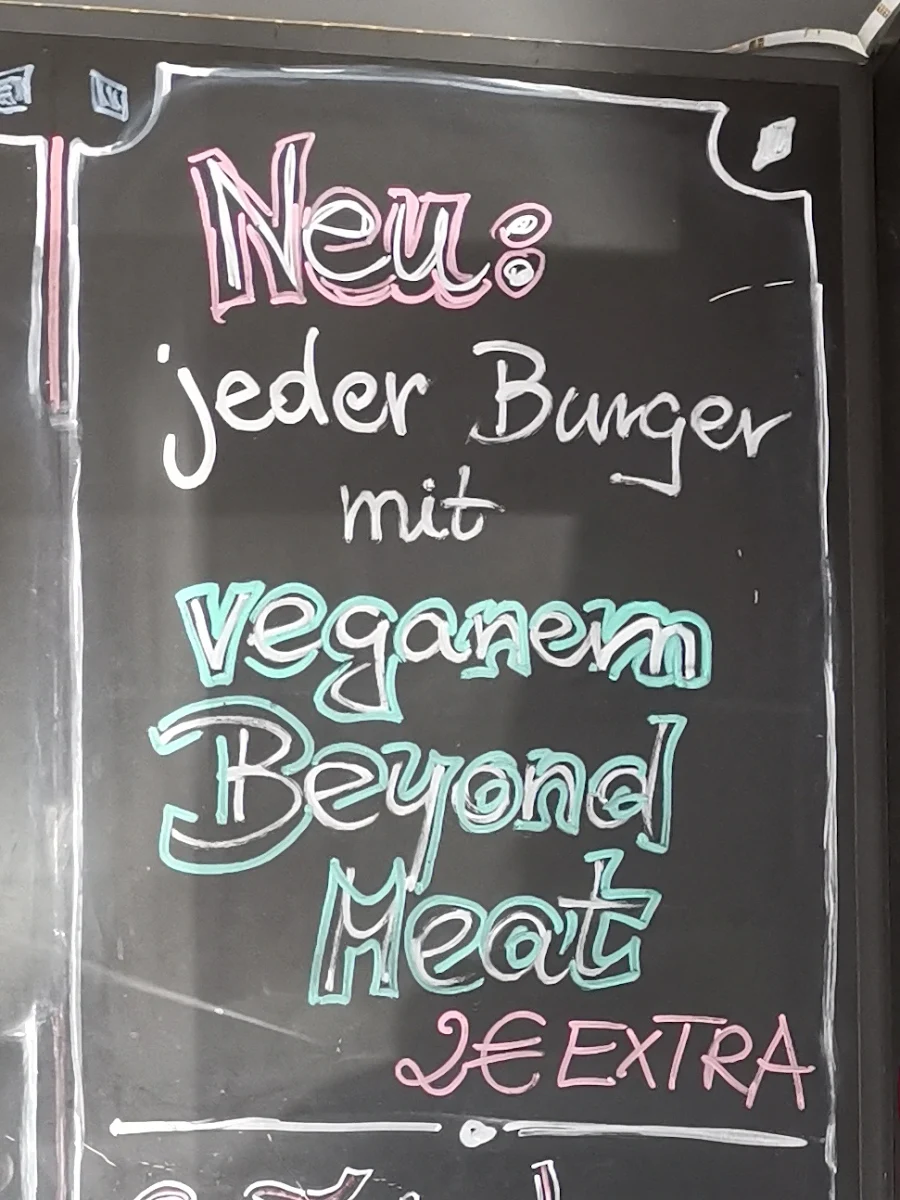 Neu:
jeder Burger
mit
veganem
Beyond
Meat
2€ EXTRA